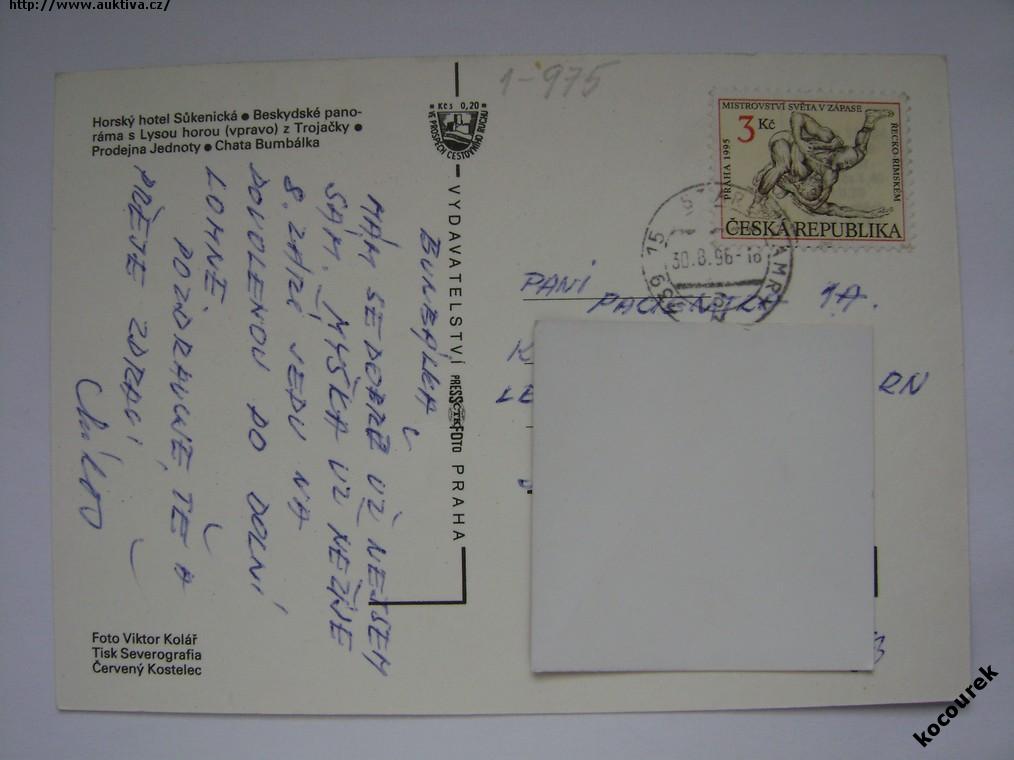 http://www.auktiva.cz/
1-975
Horský hotel Sůkenická ● Beskydské pano-
ráma s Lysou horou (vpravo) z Trojačky ●
Prodejna Jednoty ● Chata Bumbálka
Kčs 0,20
VE PROSPĚCH CESTOVNÍHO RUCHU
VYDAVATELSTVÍ PRESSFOTO PRAHA
MISTROVSTVÍ SVĚTA V ZÁPASE
ŘECKO-ŘÍMSKÉM
PRAHA 1995
3 Kč
ČESKÁ REPUBLIKA
30.8.96-16
739 15
BUMBÁLKA
MÁM SE DOBŘE UŽ NEJSEM
SÁM. MYŠKA UŽ NEŽIJE
8. ZÁŘÍ JEDU NA
DOVOLENOU DO DOLNÍ
LOMNÉ.
POZDRAVUJE TĚ A
PŘEJE ZDRAVÍ
PANÍ
1A.
K
LE RN
Foto Viktor Kolář
Tisk Severografia
Červený Kostelec
kocourek